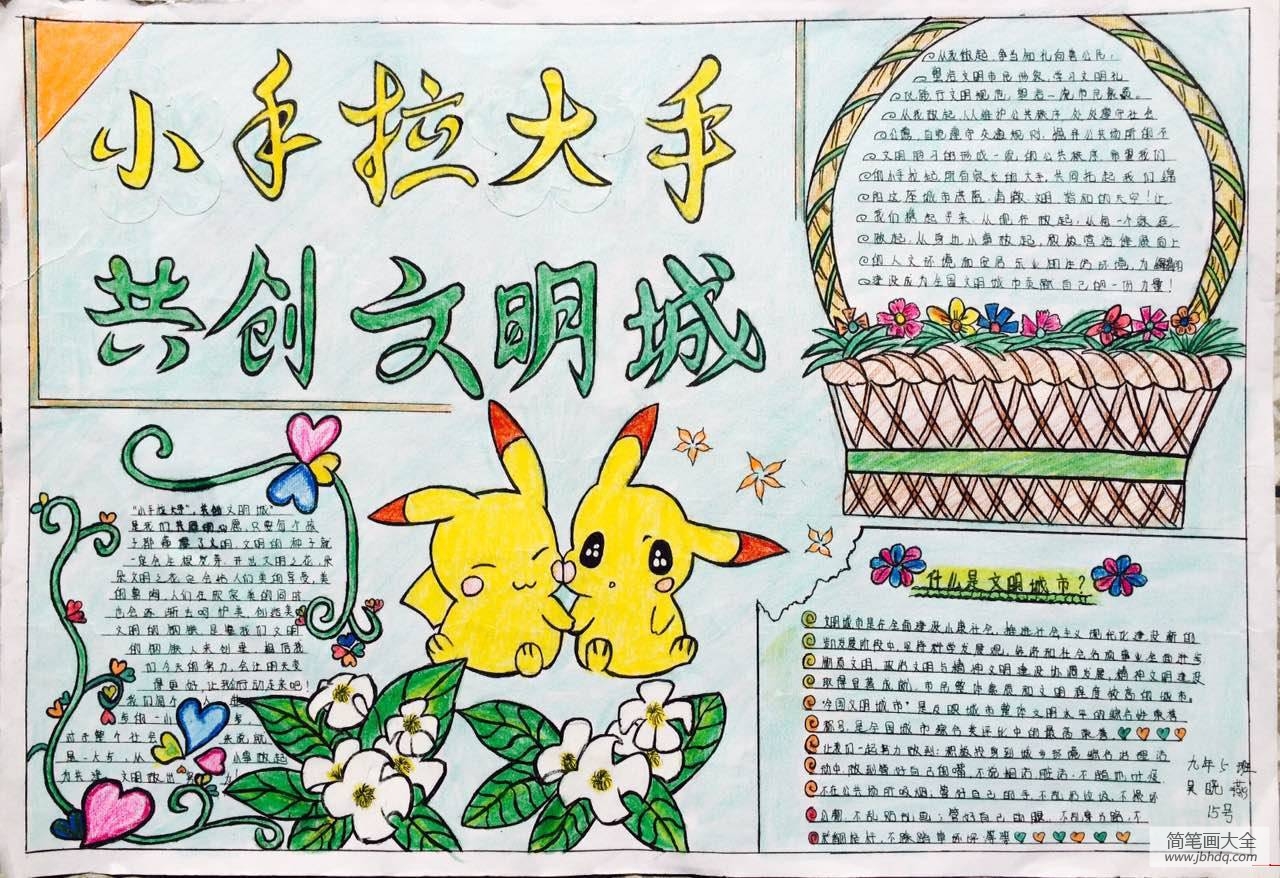 小手拉大手
共创文明城
从我做起,争当知礼向善公民,
塑造文明市民形象,学习文明礼
仪践行文明规范,塑造一流市民素质。
从我做起,人人维护公共秩序,处处遵守社会
公德,自觉遵守交通规则,摒弃公共场所的不
文明陋习
的公共秩序,希望我们
的小手拉起所有家长的大手,共同托起我们绵
阳这座城市蔚蓝、清澈、文明、
和的天空!让
我们携起手来,从现在做起,从每一个家庭
做起,从身边小事做起,积极营造健康向上
的人文环境和安居乐业的生活环境,为
建设成为全国文明城市贡献自己的一份力量!
"小手拉大手",共创文明城"
是我们共同的心愿,只要每个孩
子都播撒了文明,文明的种子就
一定会生根发芽,开出文明之花,朵
朵文明之花定会给人们美的享受,美
的熏陶,人们在欣赏美的同时
也会逐渐去呵护美,创造美
文明的
是靠我们文明
的
人来创造,相信我
们今天的努力,会让明天变
得更好,让我们行动起来吧!
我们每个
与的一小
对于整个社会
来说就
是一大步,从
小事做起
为共建
文明
出
力
什么是文明城市?
文明城市是在全面建设小康社会,推进社会主义现代化建设新的
发展阶段中,坚持科学发展观,经济和社会各项事业全面进步
物质文明,政治文明与精神文明建设协调发展,精神文明建设
取得显著成就,市民整体素质和文明程度较高的城市。
"全国文明城市"是反映城市整体文明水平的综合性荣誉
称号,是全国城市综合类评比中的最高荣誉
让我们一起努力做到:积极投身到城乡环境综合治理活
动中,做到管好自己的嘴,不说粗话脏话,不随地吐痰
不在公共场所吸烟;管好自己的手,不乱扔垃圾,不损坏
公物,不乱贴乱画;管好自己的脚,不乱穿马路,不
践踏
等等
九年5班
吴晓燕
15号
简笔画大全
www.jbhdq.com